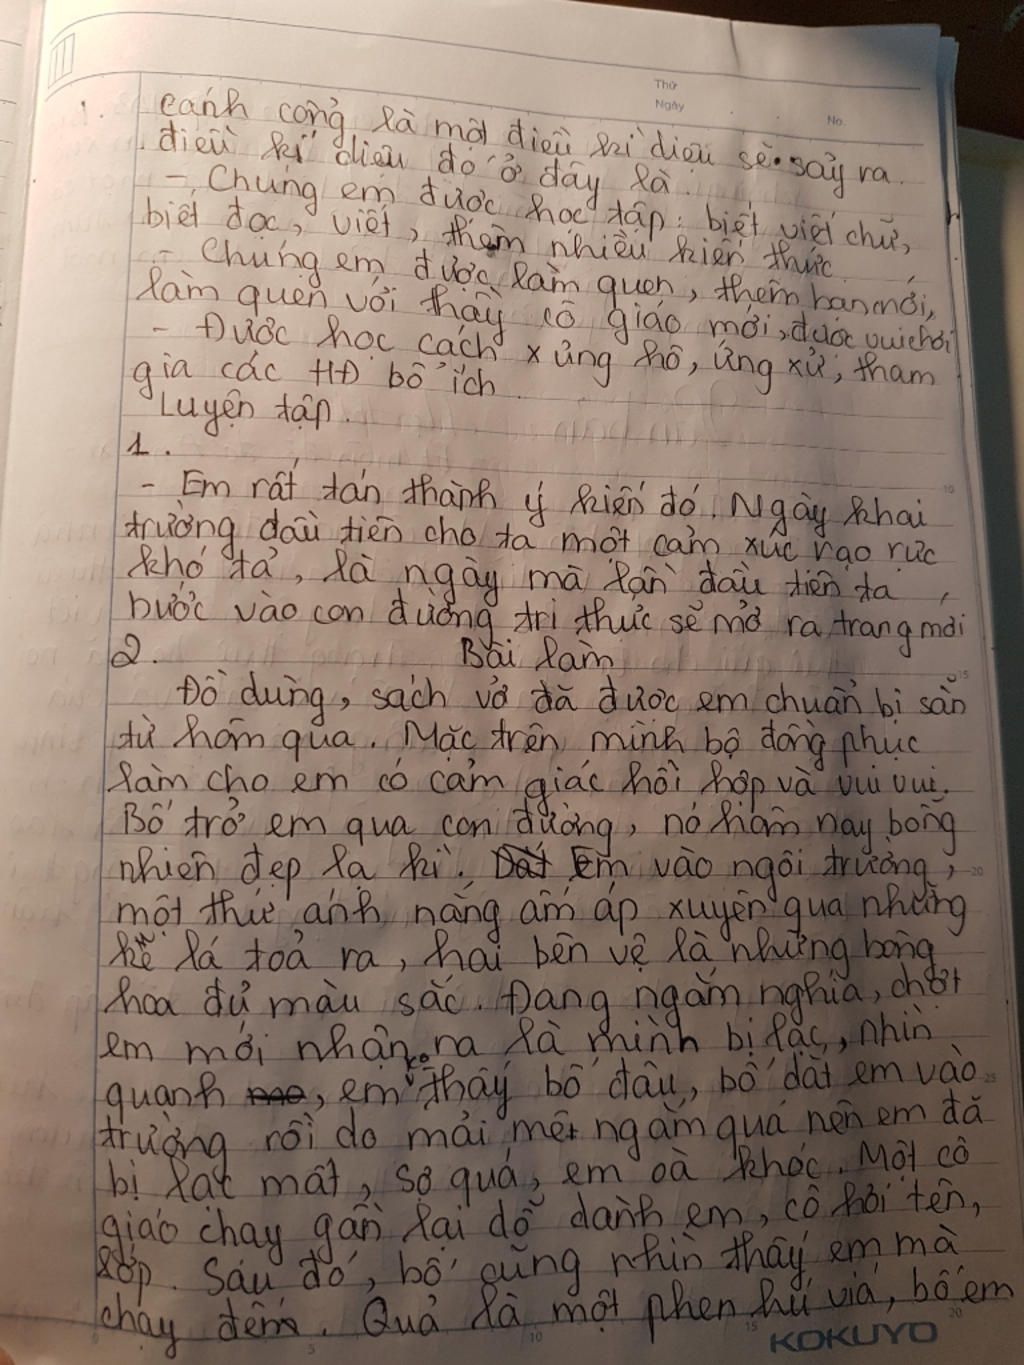 Thứ
Ngày
No.
cánh cổng là một điều kì diệu sẽ sảy ra.
điều kì diệu đó ở đây là
- Chúng em được học tập: biết viết chữ,
biết đọc, viết, thêm nhiều kiến thức
- Chúng em được làm quen, thêm bạn mới,
làm quen với thầy cô giáo mới, được vui chơi
- Được học cách xưng hô, ứng xử, tham
gia các HĐ bổ ích.
Luyện tập.
1.
- Em rất tán thành ý kiến đó. Ngày khai
trường đầu tiên cho ta một cảm xúc rạo rực
khó tả, là ngày mà lần đầu tiên ta
bước vào con đường tri thức sẽ mở ra trang mới
2. Bài làm
Đồ dùng, sách vở đã được em chuẩn bị sẵn
từ hôm qua. Mặc trên mình bộ đồng phục
làm cho em có cảm giác hồi hộp và vui vui.
Bố trở em qua con đường, nó hôm nay bỗng
nhiên đẹp lạ kì. Dắt Em vào ngôi trường,
một thứ ánh nắng ấm áp xuyên qua những
kẽ lá toả ra, hai bên vệ là những bông
hoa đủ màu sắc. Đang ngắm nghía, chợt
em mới nhận ra là mình bị lạc, nhìn
quanh, em ko thấy bố đâu, bố dắt em vào
trường rồi do mải mê ngắm quá nên em đã
bị lạc mất, sợ quá, em oà khóc. Một cô
giáo chạy gần lại dỗ dành em, cô hỏi tên,
lớp. Sau đó, bố cũng nhìn thấy em mà
chạy đến. Quả là một phen hú vía, bố em
KOKUYO